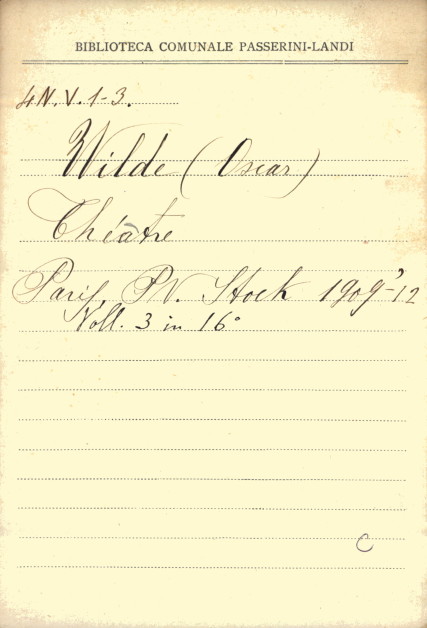 BIBLIOTECA COMUNALE PASSERINI-LANDI
4N.V.1-3.
Wilde (Oscar)
Théâtre
Paris, PV. Stock 1909-'12
Voll. 3 in 16°
C